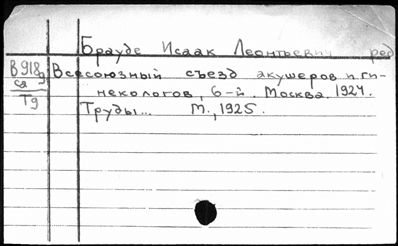 Брауде Исаак Леонтьевич ред
В918 Всесоюзный съезд акушеров и ги-
са некологов, 6-й. Москва. 1924.
Т9 Труды... М., 1925.